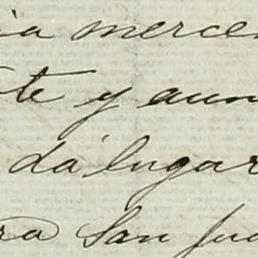 ia merce
te y aun
da lugar
ra San Jua